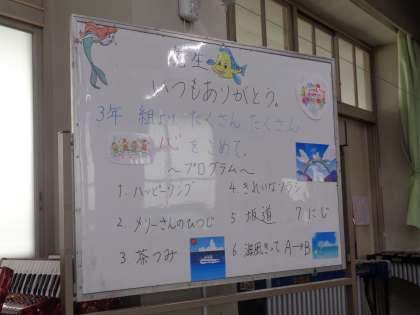 先生
いつもありがとう。
3年 組より たくさん たくさん
心をこめて、
〜プログラム〜
1. ハッピーソング
2. メリーさんのひつじ
3 茶つみ
4. きれいなソラシ
5 坂道
6 海風きって A→B
7 にじ